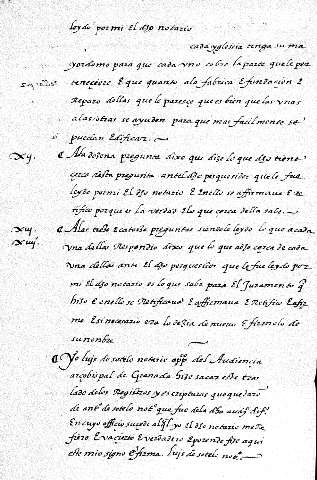 leydo por mi El dho notario
cada yglesia tenga su ma
yordomo para que cada uno cobre la parte que le per
teneciere E que quanto ala fabrica E fundacion E
Reparo dellas que le paresce que es bien que las unas
alas otras se ayuden para que mas facilmente se
puedan Edificar.
xij. A la dozena pregunta dixo que dize lo que dho tiene
cerca desta pregunta antel dho pesquesidor que le fue
leydo por mi El dho notario E En ello se affirmava E re
tifico porque es la verdad E lo que cerca della sabe.
xiij. A las treze E catorze preguntas siendole leydo lo que a cada
xiiij. una dellas Respondio dixo que lo que a dho cerca de cada
una dellas ante El dho pesquesidor que le fue leydo por
mi El dho notario es lo que sabe para El Juramento q
hizo E en ello se Ratificava E affirmava E Retifico E afir
mo E si necesario era lo dezia de nuevo E firmolo de
su nonbre
Yo luis de sotelo notario app. del Audiencia
arçobispal de Granada hize sacar este tras
lado delos Registros y escripturas que quedaro
de ant.º de sotelo not.º que fue dela dha audi.ª
En cuyo officio sucedi al qual yo el dho notario me Re
fiero E va cierto E verdadero E por ende fize aqui
este mio signo E firma. luis de sotelo not.º